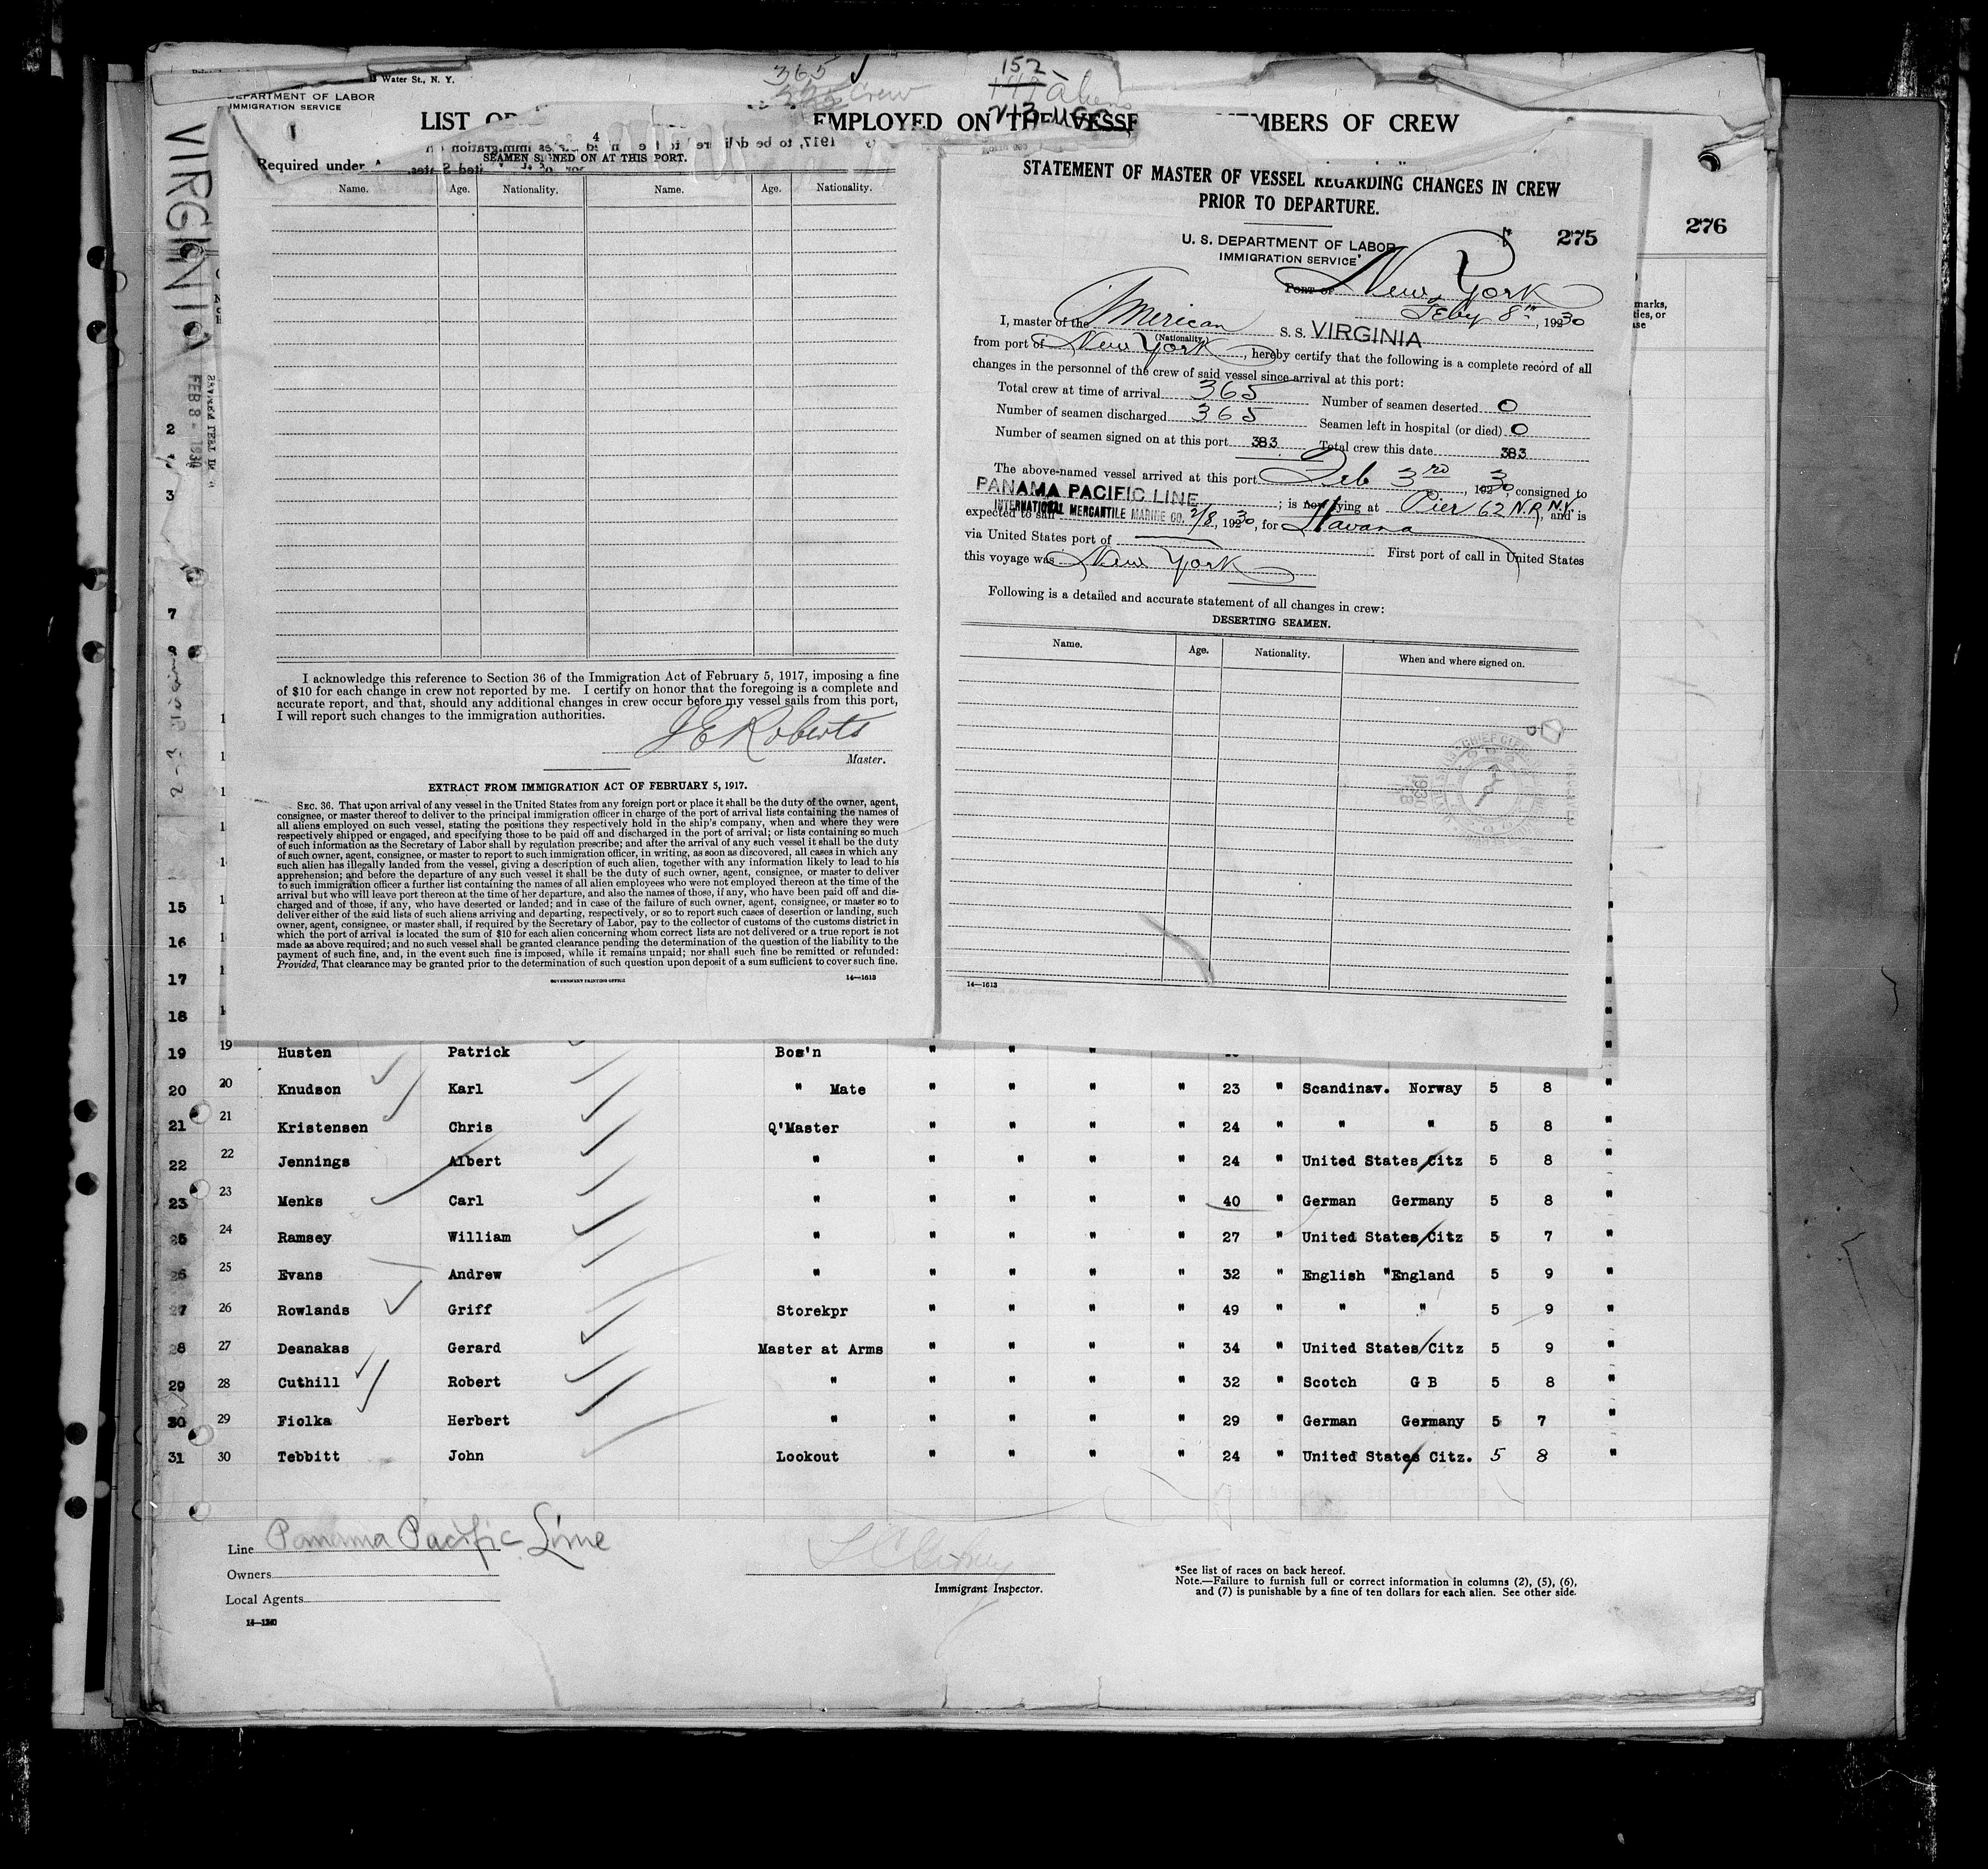 Water St., N. Y.
365 crew
152
DEPARTMENT OF LABOR
IMMIGRATION SERVICE
LIST OF EMPLOYED ON THE VESSEL MEMBERS OF CREW
Required under
276
VIRGINIA
FEB 8 - 1930
SEAMEN SIGNED ON AT THIS PORT.
Name. Age. Nationality. Name. Age. Nationality.
I acknowledge this reference to Section 36 of the Immigration Act of February 5, 1917, imposing a fine
of $10 for each change in crew not reported by me. I certify on honor that the foregoing is a complete and
accurate report, and that, should any additional changes in crew occur before my vessel sails from this port,
I will report such changes to the immigration authorities.
J E Roberts
Master.
EXTRACT FROM IMMIGRATION ACT OF FEBRUARY 5, 1917.
SEC. 36. That upon arrival of any vessel in the United States from any foreign port or place it shall be the duty of the owner, agent,
consignee, or master thereof to deliver to the principal immigration officer in charge of the port of arrival lists containing the names of
all aliens employed on such vessel, stating the positions they respectively hold in the ship's company, when and where they were
respectively shipped or engaged, and specifying those to be paid off and discharged in the port of arrival; or lists containing so much
of such information as the Secretary of Labor shall by regulation prescribe; and after the arrival of any such vessel it shall be the duty
of such owner, agent, consignee, or master to report to such immigration officer, in writing, as soon as discovered, all cases in which any
such alien has illegally landed from the vessel, giving a description of such alien, together with any information likely to lead to his
apprehension; and before the departure of any such vessel it shall be the duty of such owner, agent, consignee, or master to deliver
to such immigration officer a further list containing the names of all alien employees who were not employed thereon at the time of the
arrival but who will leave port thereon at the time of her departure, and also the names of those, if any, who have been paid off and dis-
charged and of those, if any, who have deserted or landed; and in case of the failure of such owner, agent, consignee, or master so to
deliver either of the said lists of such aliens arriving and departing, respectively, or so to report such cases of desertion or landing, such
owner, agent, consignee, or master shall, if required by the Secretary of Labor, pay to the collector of customs of the customs district in
which the port of arrival is located the sum of $10 for each alien concerning whom correct lists are not delivered or a true report is not
made as above required; and no such vessel shall be granted clearance pending the determination of the question of the liability to the
payment of such fine, and, in the event such fine is imposed, while it remains unpaid; nor shall such fine be remitted or refunded:
Provided, That clearance may be granted prior to the determination of such question upon deposit of a sum sufficient to cover such fine.
GOVERNMENT PRINTING OFFICE 14—1613
STATEMENT OF MASTER OF VESSEL REGARDING CHANGES IN CREW
PRIOR TO DEPARTURE.
275
U. S. DEPARTMENT OF LABOR
IMMIGRATION SERVICE
Port of New York
Feby 8th, 1930
I, master of the American S. S. VIRGINIA
(Nationality)
from port of New York, hereby certify that the following is a complete record of all
changes in the personnel of the crew of said vessel since arrival at this port:
Total crew at time of arrival 365 Number of seamen deserted 0
Number of seamen discharged 365 Seamen left in hospital (or died) 0
Number of seamen signed on at this port 383 Total crew this date 383
The above-named vessel arrived at this port Feb 3rd, 1930, consigned to
PANAMA PACIFIC LINE ; is now lying at Pier 62 N.R. N.Y., and is
INTERNATIONAL MERCANTILE MARINE CO.
expected to sail 2/8, 1930, for Havana
via United States port of First port of call in United States
this voyage was New York
Following is a detailed and accurate statement of all changes in crew:
DESERTING SEAMEN.
Name. Age. Nationality. When and where signed on.
14—1613
2
3
7
8
15
16
17
18
19 19 Husten Patrick Bos'n " " "
20 20 Knudson Karl " Mate " " " " 23 " Scandinav. Norway 5 8 "
21 21 Kristensen Chris Q'Master " " " " 24 " " " 5 8 "
22 22 Jennings Albert " " " " " 24 " United States Citz 5 8 "
23 23 Menks Carl " " " " " 40 " German Germany 5 8 "
25 24 Ramsey William " " " " " 27 " United States Citz 5 7 "
26 25 Evans Andrew " " " " " 32 " English "England 5 9 "
27 26 Rowlands Griff Storekpr " " " " 49 " " " 5 9 "
28 27 Deanakas Gerard Master at Arms " " " " 34 " United States Citz 5 9 "
29 28 Cuthill Robert " " " " " 32 " Scotch G B 5 8 "
30 29 Fiolka Herbert " " " " " 29 " German Germany 5 7 "
31 30 Tebbitt John Lookout " " " " 24 " United States Citz. 5 8 "
Line Panama Pacific Line
Owners
Local Agents
14—1240
Immigrant Inspector.
*See list of races on back hereof.
Note.—Failure to furnish full or correct information in columns (2), (5), (6),
and (7) is punishable by a fine of ten dollars for each alien. See other side.